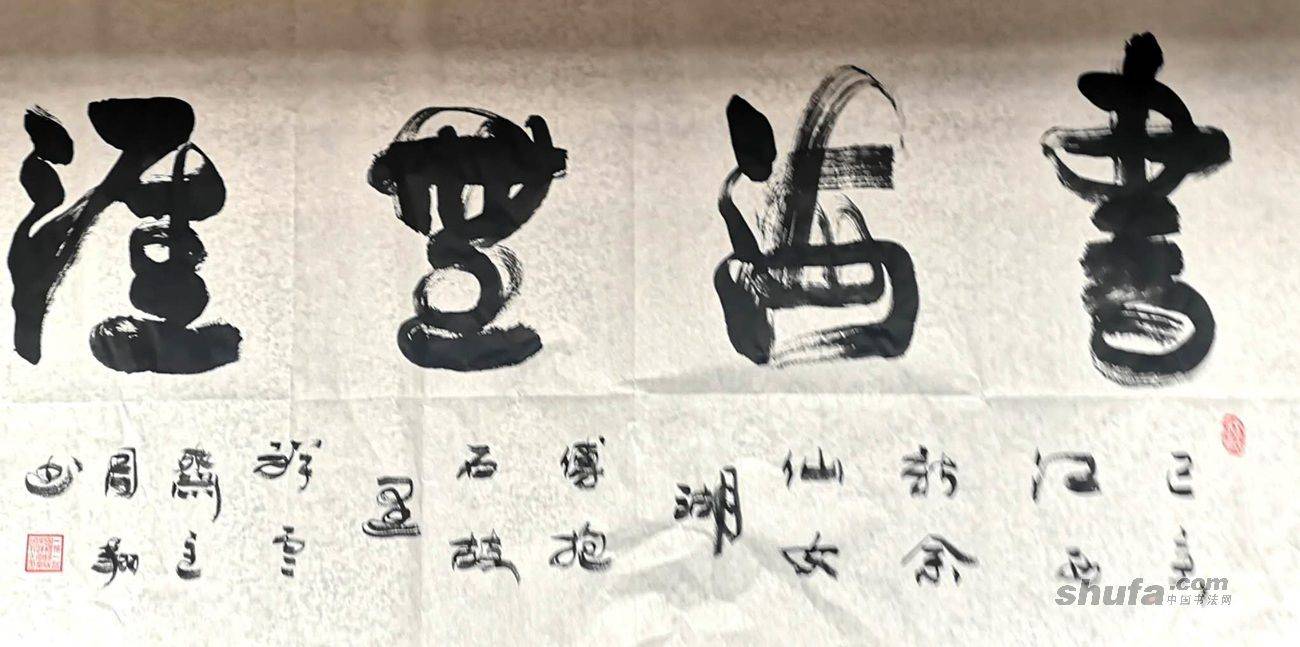 書海無涯
己亥
江西
新余
仙女
湖
傅抱
石故
里
祥雲
齋主
周翔
书
shufa.com
中国书法网